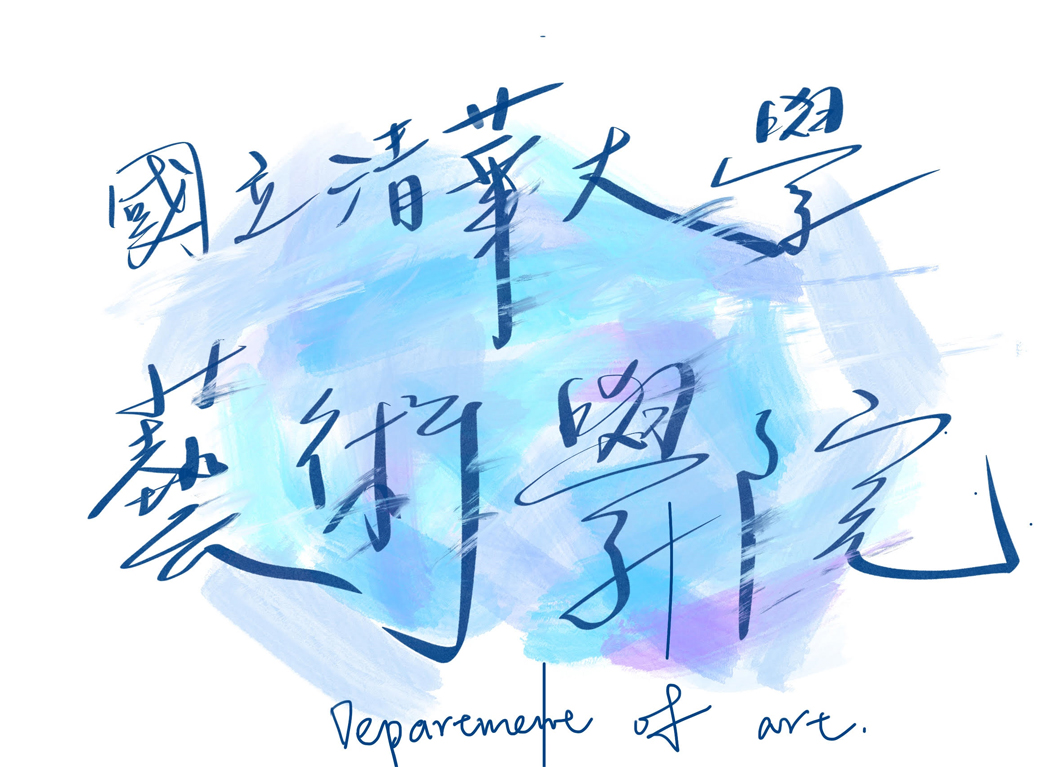 國立清華大學
藝術學院
Department of art.